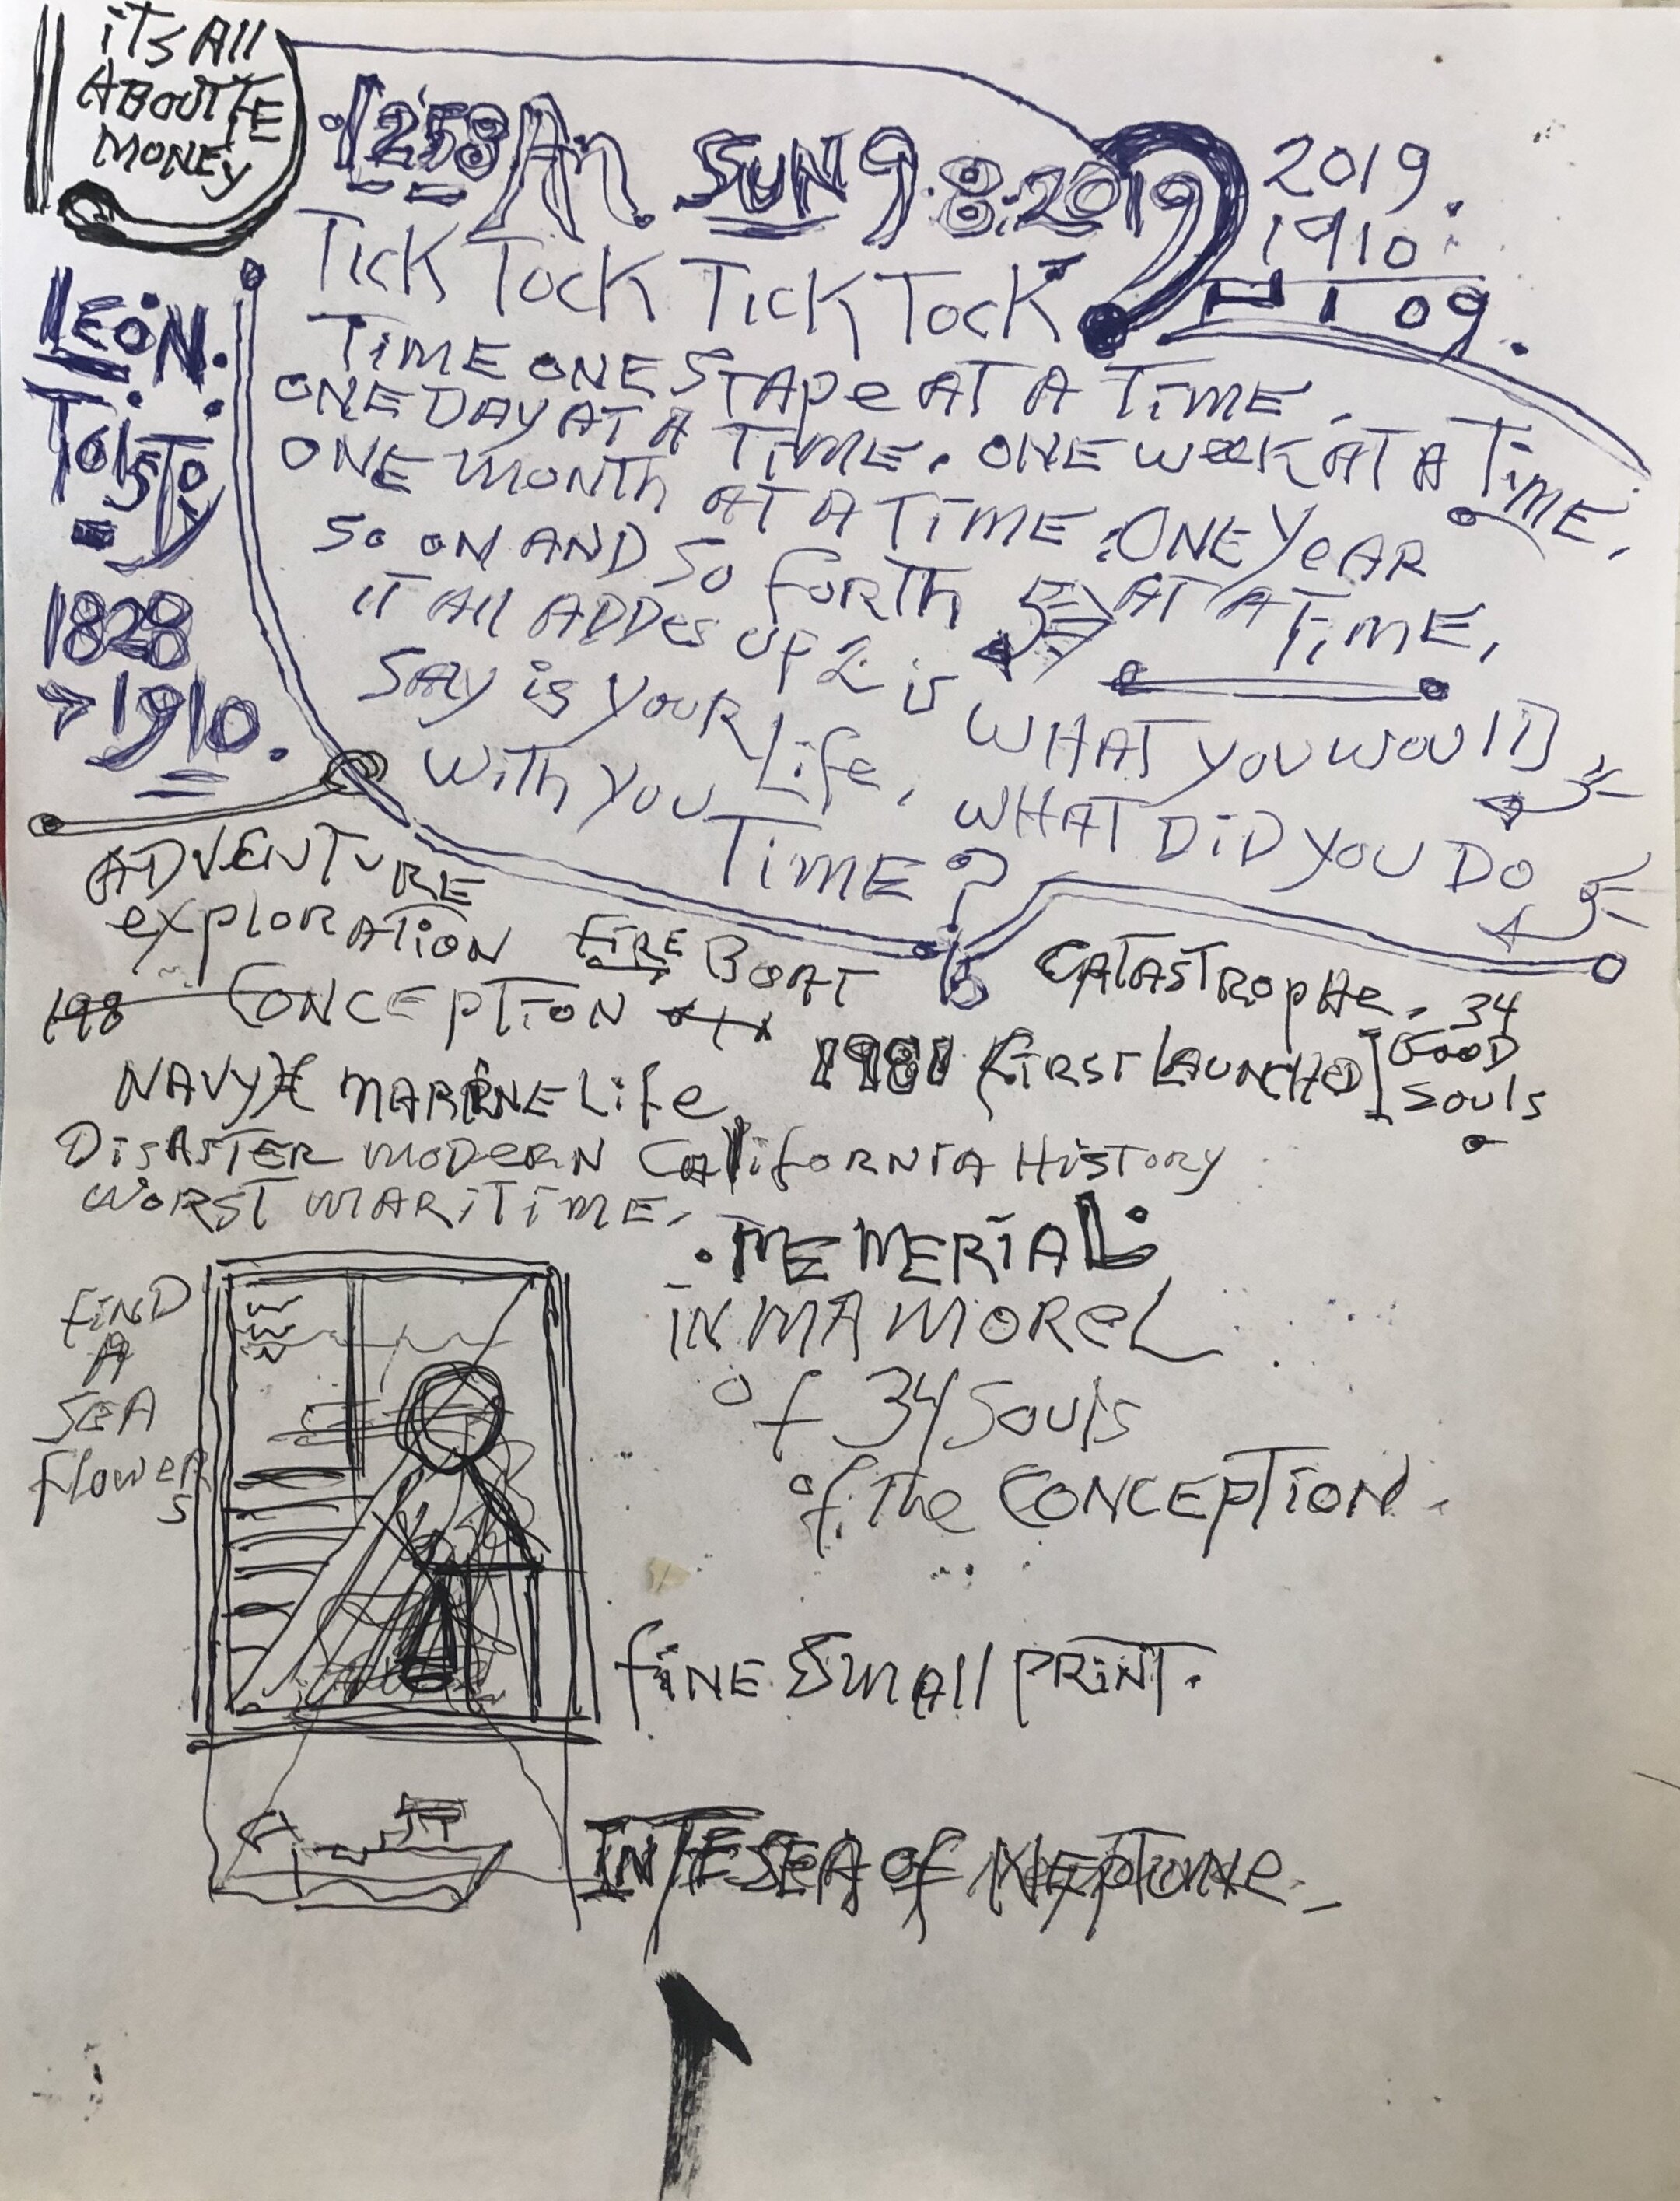 iTS All
ABOUT TE
MONEY
1258 Am. SUN 9.8.2019
2019.
1910.
109.
TICK TOCK TICK TOCK
LEON.
TOlSTOY
1828
1910.
TiME ONE STAPe AT A TiME.
ONE DAY AT A TiME. ONE WeeK AT A TiME.
ONE MONTh AT A TiME. ONE YeAR
AT A TiME.
SO ON AND SO FORTh
iT All ADDes UP 2 is WHAT YOU WOUlD
SAY is YOUR Life. WHAT DiD YOU DO
WiTh YOU TiME?
ADVENTURE
exploRATiON FiRE BOAT CATASTROpHe. 34
GOOD
SOUlS
198 CONCEpTiON
1981 FiRST LAUNCHED
NAVY MARiNE Life.
DiSASTER MODERN CAliFORNiA HiSTORY
WORST MARiTiME.
MEMERiAL
iN MA MOReL
of 34 SOUlS
of The CONCEpTiON.
FiND
A
SEA
FloweR
S
fiNE SMAll PRiNT.
IN TE SEA Of NEpTUNe.